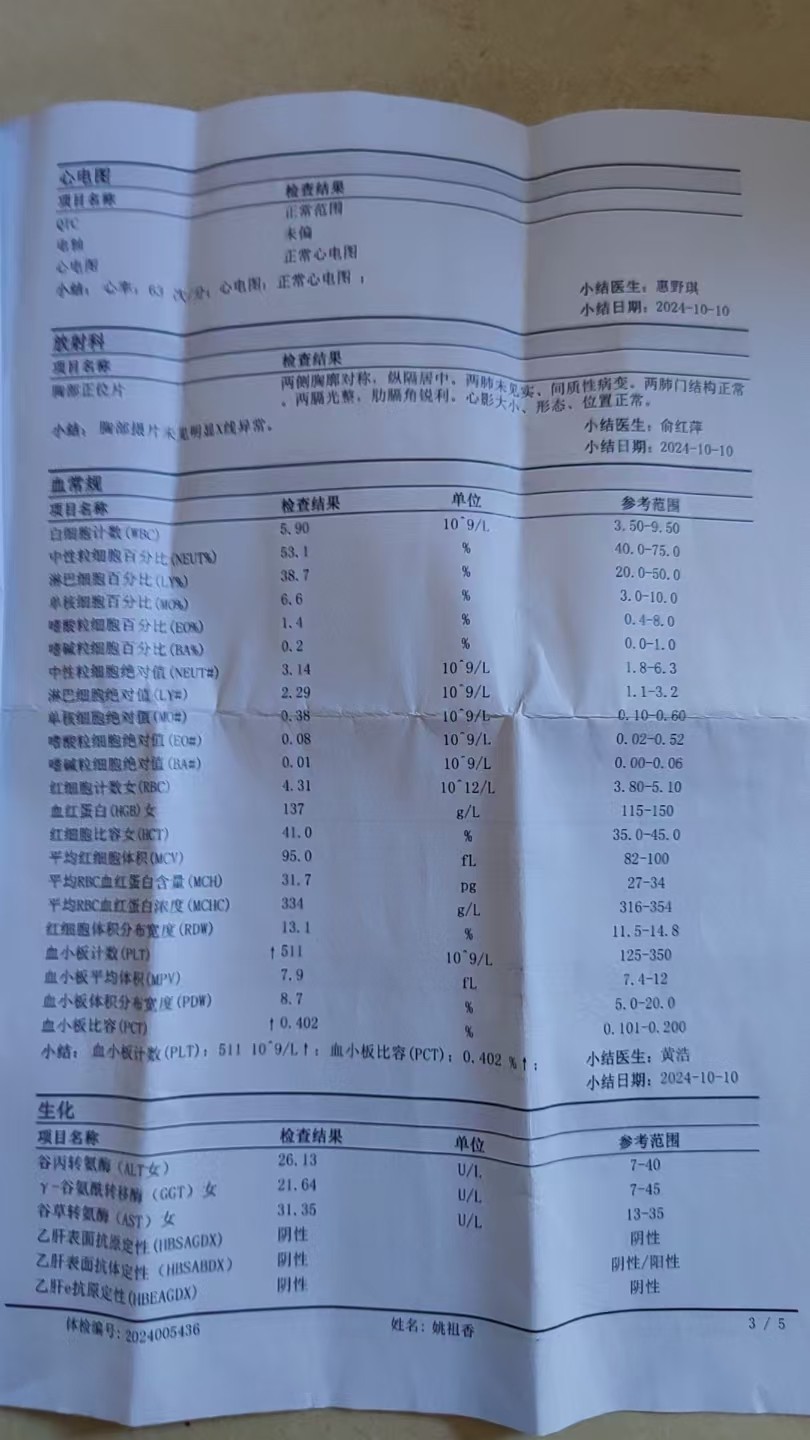 心电图
项目名称 检查结果
QTC 正常范围
电轴 未偏
心电图 正常心电图
小结: 心率: 63 次/分; 心电图: 正常心电图 ;
小结医生: 惠野琪
小结日期: 2024-10-10
放射科
项目名称 检查结果
胸部正位片 两侧胸廓对称, 纵隔居中。两肺未见实、间质性病变。两肺门结构正常
。两膈光整, 肋膈角锐利。心影大小、形态、位置正常。
小结: 胸部摄片未见明显X线异常。
小结医生: 俞红萍
小结日期: 2024-10-10
血常规
项目名称 检查结果 单位 参考范围
白细胞计数(WBC) 5.90 10^9/L 3.50-9.50
中性粒细胞百分比(NEUT%) 53.1 % 40.0-75.0
淋巴细胞百分比(LY%) 38.7 % 20.0-50.0
单核细胞百分比(MO%) 6.6 % 3.0-10.0
嗜酸粒细胞百分比(EO%) 1.4 % 0.4-8.0
嗜碱粒细胞百分比(BA%) 0.2 % 0.0-1.0
中性粒细胞绝对值(NEUT#) 3.14 10^9/L 1.8-6.3
淋巴细胞绝对值(LY#) 2.29 10^9/L 1.1-3.2
单核细胞绝对值(MO#) 0.38 10^9/L 0.10-0.60
嗜酸粒细胞绝对值(EO#) 0.08 10^9/L 0.02-0.52
嗜碱粒细胞绝对值(BA#) 0.01 10^9/L 0.00-0.06
红细胞计数女(RBC) 4.31 10^12/L 3.80-5.10
血红蛋白(HGB)女 137 g/L 115-150
红细胞比容女(HCT) 41.0 % 35.0-45.0
平均红细胞体积(MCV) 95.0 fL 82-100
平均RBC血红蛋白含量(MCH) 31.7 pg 27-34
平均RBC血红蛋白浓度(MCHC) 334 g/L 316-354
红细胞体积分布宽度(RDW) 13.1 % 11.5-14.8
血小板计数(PLT) ↑511 10^9/L 125-350
血小板平均体积(MPV) 7.9 fL 7.4-12
血小板体积分布宽度(PDW) 8.7 % 5.0-20.0
血小板比容(PCT) ↑0.402 % 0.101-0.200
小结: 血小板计数(PLT): 511 10^9/L↑; 血小板比容(PCT): 0.402 %↑;
小结医生: 黄浩
小结日期: 2024-10-10
生化
项目名称 检查结果 单位 参考范围
谷丙转氨酶(ALT女) 26.13 U/L 7-40
γ-谷氨酰转移酶(GGT)女 21.64 U/L 7-45
谷草转氨酶(AST)女 31.35 U/L 13-35
乙肝表面抗原定性(HBSAGDX) 阴性 阴性
乙肝表面抗体定性(HBSABDX) 阴性 阴性/阳性
乙肝e抗原定性(HBEAGDX) 阴性 阴性
体检编号: 2024005436 姓名: 姚祖香 3 / 5